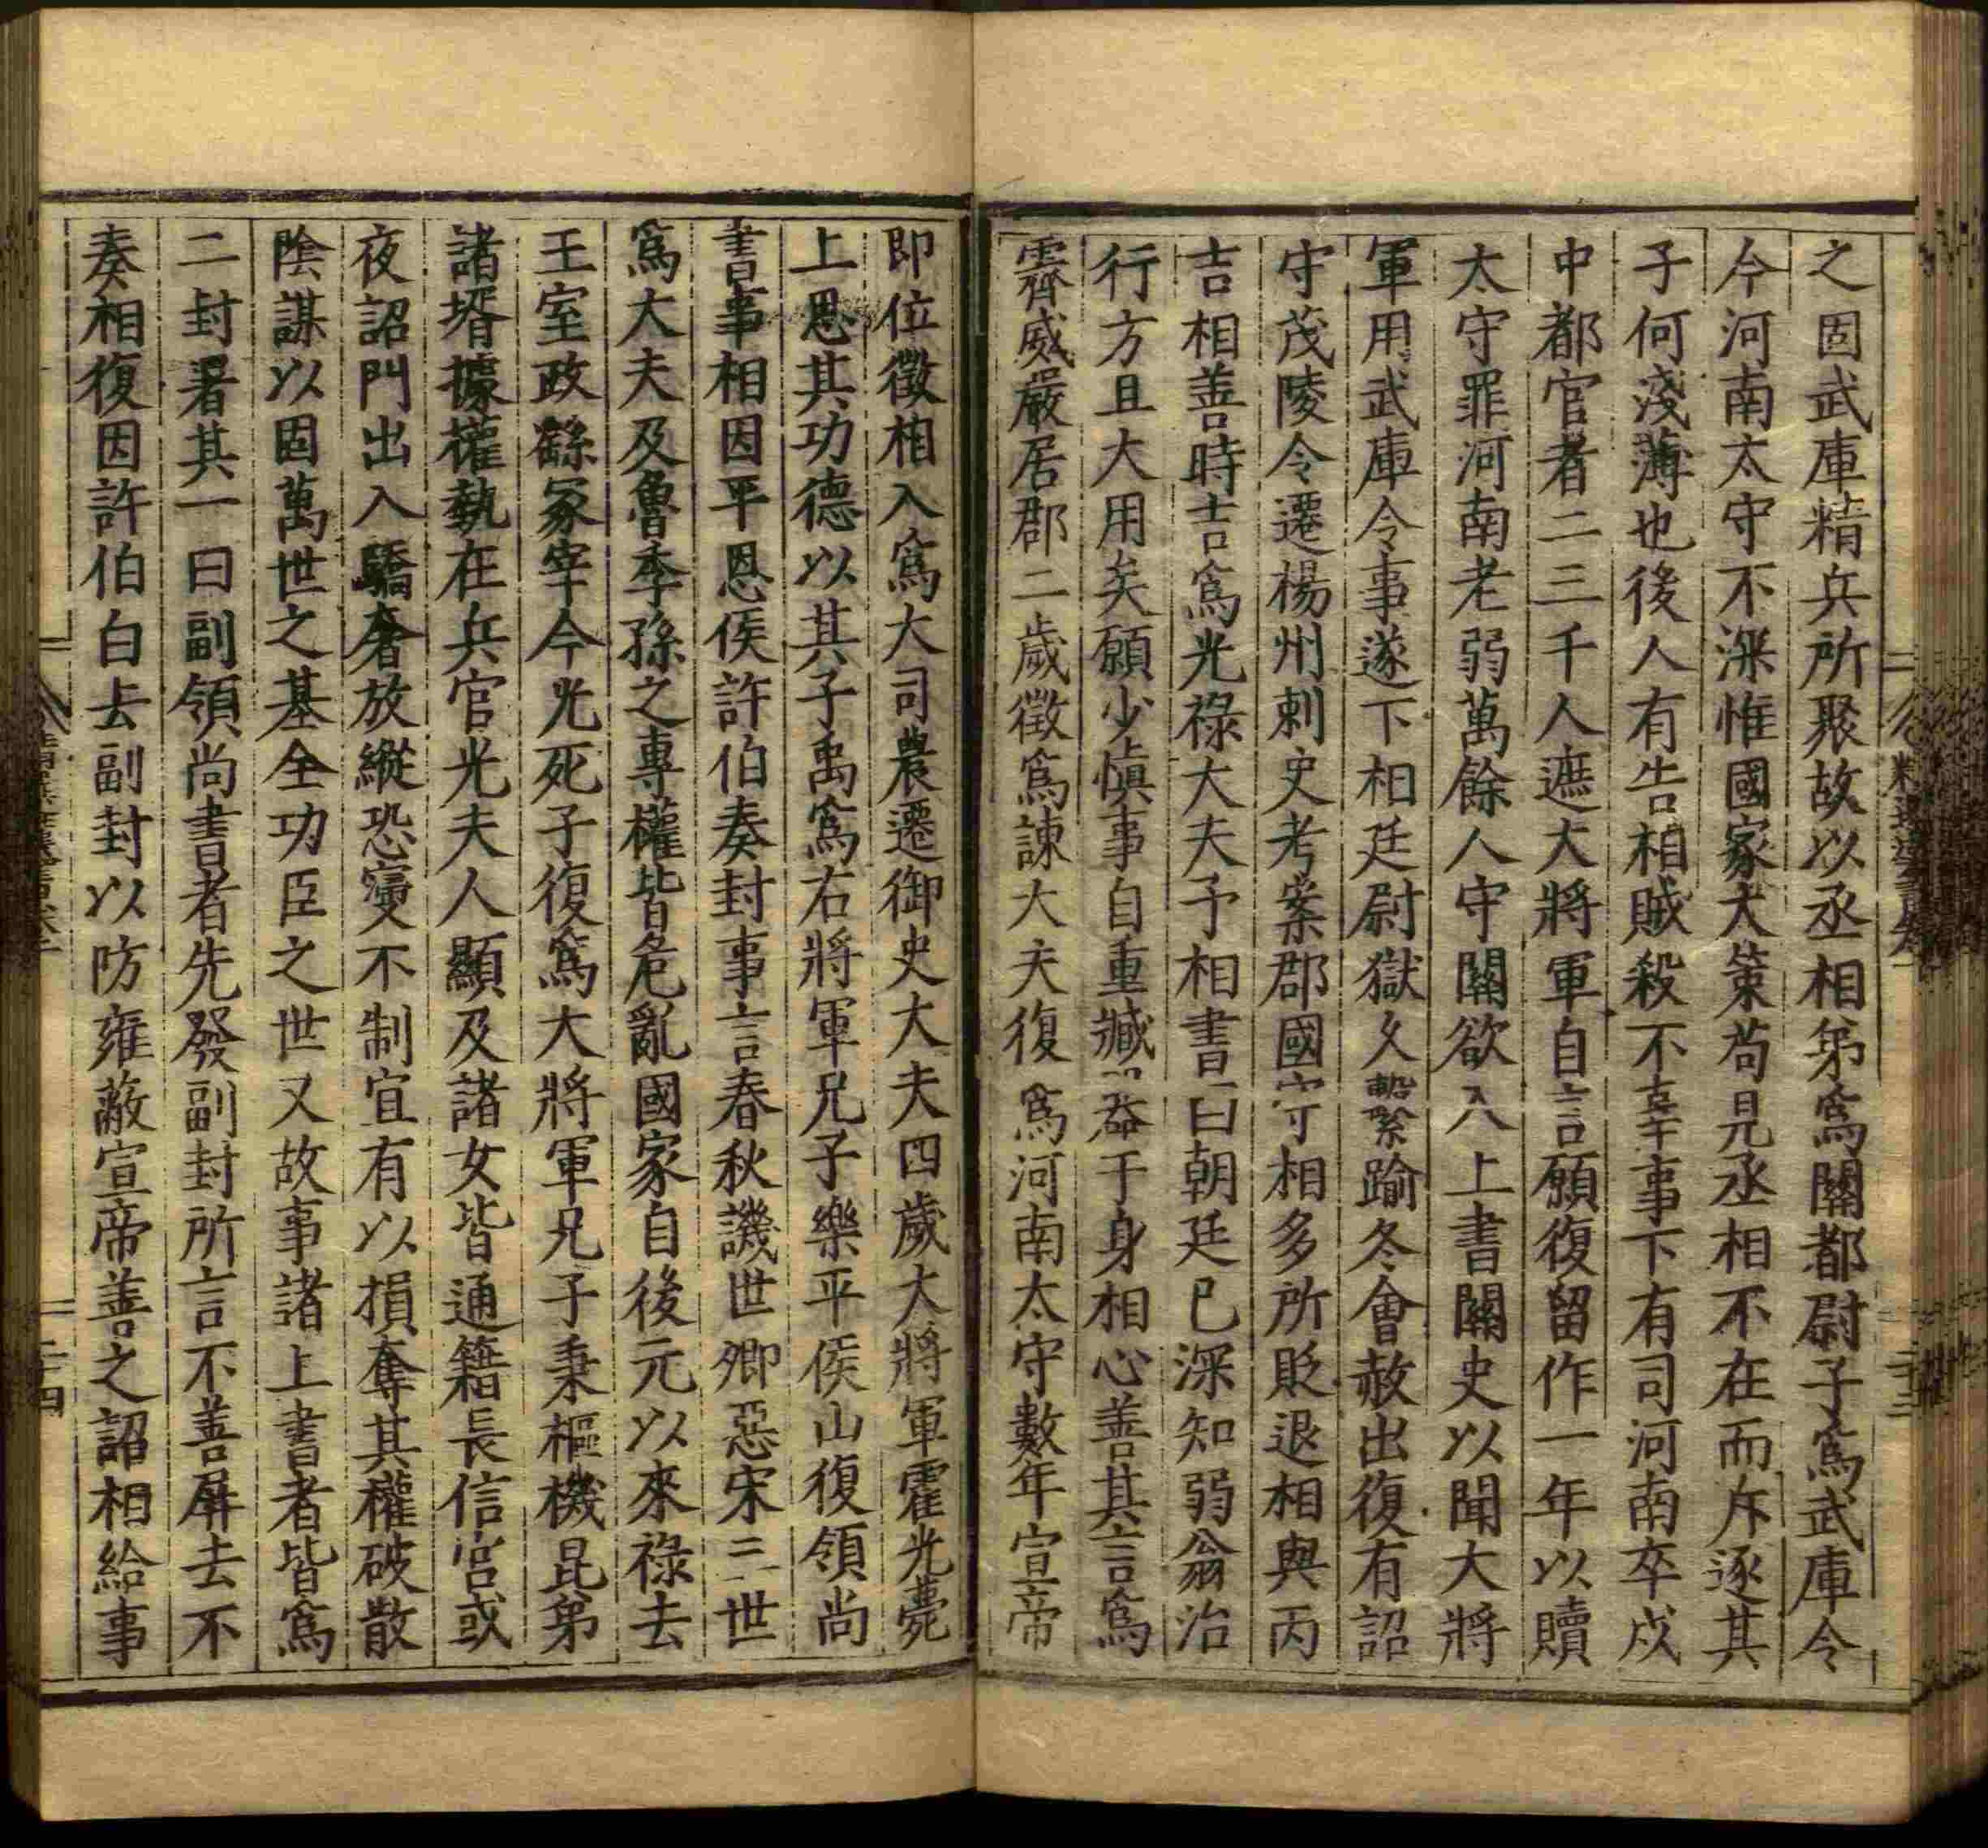 之固武庫精兵所聚故以丞相弟爲關都尉子爲武庫令
今河南太守不深惟國家大策苟見丞相不在而斥逐其
子何淺薄也後人有告相賊殺不辜事下有司河南卒戍
中都官者二三千人遮大將軍自言願復留作一年以贖
太守罪河南老弱萬餘人守關欲入上書關史以聞大將
軍用武庫令事遂下相廷尉獄久繫踰冬會赦出復有詔
守茂陵令遷楊州刺史考案郡國守相多所貶退相與丙
吉相善時吉爲光祿大夫予相書曰朝廷已深知弱翁治
行方且大用矣願少慎事自重臧器于身相心善其言爲
霽威嚴居郡二歲徵爲諫大夫復爲河南太守數年宣帝
即位徵相入爲大司農遷御史大夫四歲大將軍霍光薨
上思其功德以其子禹爲右將軍兄子樂平侯山復領尚
書事相因平恩侯許伯奏封事言春秋譏世卿惡宋三世
爲大夫及魯季孫之專權皆危亂國家自後元以來祿去
王室政繇冢宰今光死子復爲大將軍兄子秉樞機昆弟
諸壻據權埶在兵官光夫人顯及諸女皆通籍長信宮或
夜詔門出入驕奢放縱恐寖不制宜有以損奪其權破散
陰謀以固萬世之基全功臣之世又故事諸上書者皆爲
二封署其一曰副領尚書者先發副封所言不善屏去不
奏相復因許伯白去副封以防雍蔽宣帝善之詔相給事
二十四